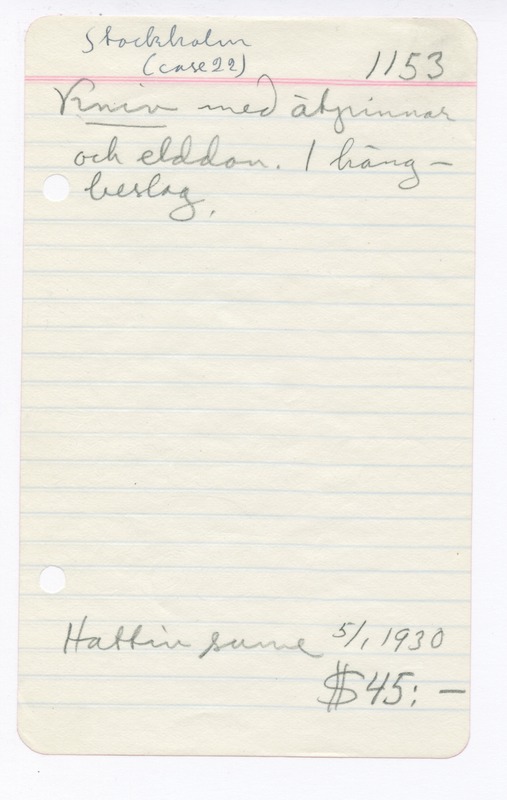 Stockholm
(case 22)
1153
Kniv med ätpinnar
och elddon. 1 häng-
beslag.
Hattin sume 5/1 1930
$45:-